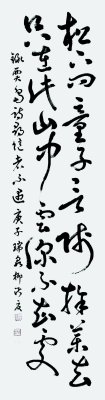 松下問童子言師採藥去
只在此山中雲深不知處
賈島詩尋隱者不遇 庚子